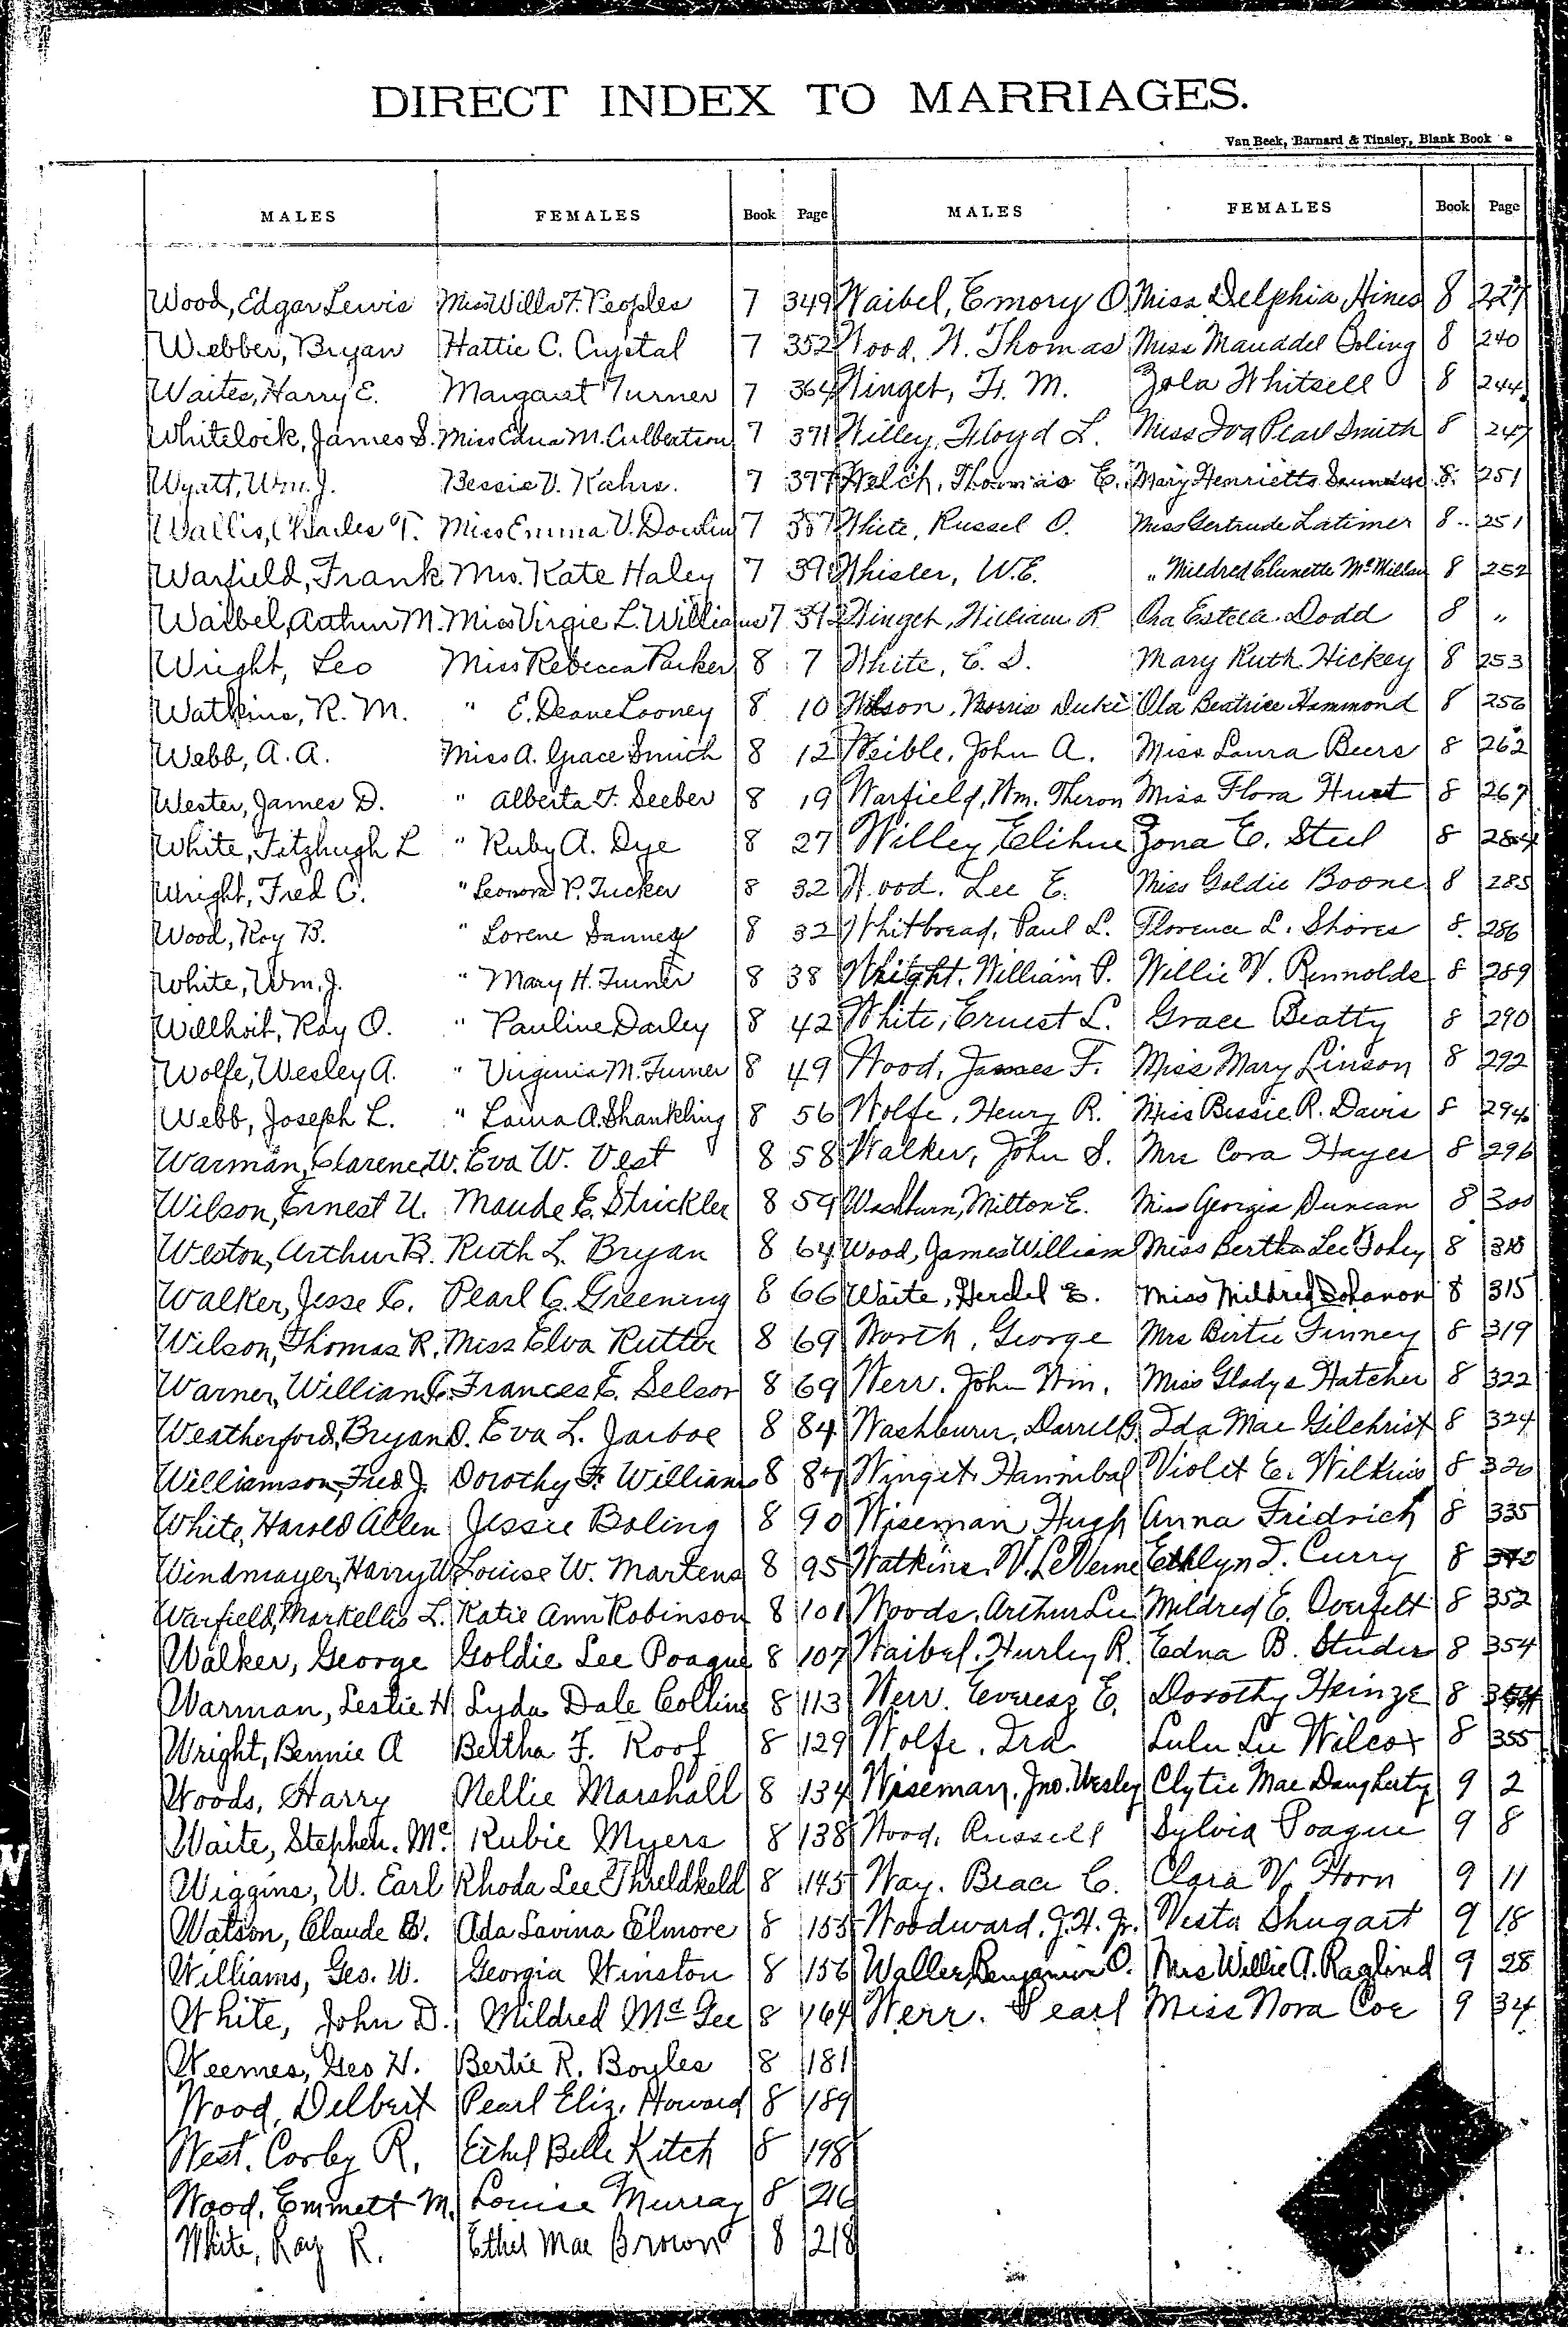 DIRECT INDEX TO MARRIAGES.
Van Beek, Barnard & Tinsley, Blank Book
MALES FEMALES Book Page MALES FEMALES Book Page
Wood, Edgar Lewis Miss Willa F. Peoples 7 349 Waibel, Emory O. Miss Delphia Hines 8 227
Webber, Bryan Hattie C. Crystal 7 352 Wood, W. Thomas Miss Mauddel Boling 8 240
Waites, Harry E. Margaret Turner 7 364 Winget, F. M. Zola Whitsell 8 244
Whitelock, James S. Miss Edna M. Culbertson 7 371 Willey, Floyd L. Miss Iva Pearl Smith 8 247
Wyatt, Wm. J. Bessie V. Kahrs. 7 377 Welch, Thomas E. Mary Henrietta 8 251
Wallis, Charles T. Miss Emma V. 7 White, Russel O. Miss Gertrude Latimer 8 251
Warfield, Frank Mrs. Kate Haley 7 Whisler, W.E. " Mildred McMillan 8 252
Waibel, Arthur M. Miss Virgie L. Williams 7 Winget, William R. Ora Estella Dodd 8 "
Wright, Leo Miss Rebecca Parker 8 7 White, E. S. Mary Ruth Hickey 8 253
Watkins, R. M. " E. Deane Looney 8 10 Wilson, Morris Duke Ola Beatrice Hammond 8 256
Webb, A. A. Miss A. Grace Smith 8 12 Weible, John A. Miss Laura Beers 8 262
Wester, James D. " Alberta F. Seeber 8 19 Warfield, Wm. Theron Miss Flora Hurt 8 267
White, Fitzhugh L " Ruby A. Dye 8 27 Willey, Elihue Zona E. Steel 8 284
Wright, Fred C. " Leonora P. Tucker 8 32 Wood, Lee E. Miss Goldie Boone 8 285
Wood, Roy B. " Lorene 8 32 Whitbread, Paul L. Florence L. Shores 8 286
White, Wm. J. " Mary H. Turner 8 38 Wright, William P. Willie V. Rennolds 8 289
Willhoit, Ray O. " Pauline Darley 8 42 White, Ernest L. Grace Beatty 8 290
Wolfe, Wesley A. " Virginia M. Turner 8 49 Wood, James F. Miss Mary Linson 8 292
Webb, Joseph L. " Laura A. Shankling 8 56 Wolfe, Henry R. Miss Bessie R. Davis 8 294
Warman, Clarence W. Eva W. Vest 8 58 Walker, John S. Mrs Cora Hayes 8 296
Wilson, Ernest U. Maude E. Strickler 8 59 Washburn, Milton E. Miss Georgia Duncan 8 300
Weston, Arthur B. Ruth L. Bryan 8 64 Wood, James William Miss Bertha Lee 8
Walker, Jesse C. Pearl C. Greening 8 66 Waite, Herchel E. Miss Mildred Bohanon 8 315
Wilson, Thomas R. Miss Elva Rutter 8 69 Worth, George Mrs Birtie Finney 8 319
Warner, William C. Frances E. Selsor 8 69 Werr, John Wm. Miss Gladys Hatcher 8 322
Weatherford, Bryan D. Eva L. Jarboe 8 84 Washburn, Darrel B. Ida Mae Gilchrist 8 324
Williamson, Fred J. Dorothy F. Williams 8 87 Winget, Hannibal Violet E. Wilkins 8 326
White, Harold Allen Jessie Boling 8 90 Wiseman, Hugh Anna Fridrich 8 335
Windmayer, Harry W. Louise W. Martens 8 95 Watkins, V. LeVerne Ethlyn I. Curry 8
Warfield, Markellis L. Katie Ann Robinson 8 101 Woods, Arthur Lee Mildred E. Overfelt 8 352
Walker, George Goldie Lee Poague 8 107 Waibel, Hurley R. Edna B. Studer 8 354
Warman, Leslie H. Lyda Dale Collins 8 113 Werr, E. Dorothy Heinze 8 354
Wright, Bennie A Bertha F. Roof 8 129 Wolfe, Ira Lulu Lee Wilcox 8 355
Woods, Harry Nellie Marshall 8 134 Wiseman, Jno. Wesley Clytie Mae Daugherty 9 2
Waite, Stephen Mc. Rubie Myers 8 138 Wood, Russell Sylvia Poague 9 8
Wiggins, W. Earl Rhoda Lee Threldkeld 8 145 Way, Brace C. Clara V. Horn 9 11
Watson, Claude Ada Lavina Elmore 8 155 Woodward, J.H. Jr. Vesta Shugart 9 18
Williams, Geo. W. Georgia Winston 8 156 Waller, Benjamin O. Mrs Willie A. Raglind 9 28
White, John D. Mildred McGee 8 164 Werr, Pearl Miss Nora Coe 9 34
Weemes, Geo H. Bertie R. Boyles 8 181
Wood, Delbert Pearl Eliz. Howard 8 189
West, Corby R. Ethel Belle Kitch 8 198
Wood, Emmett M. Louise Murray 8 216
White, Ray R. Ethel Mae Brown 8 218